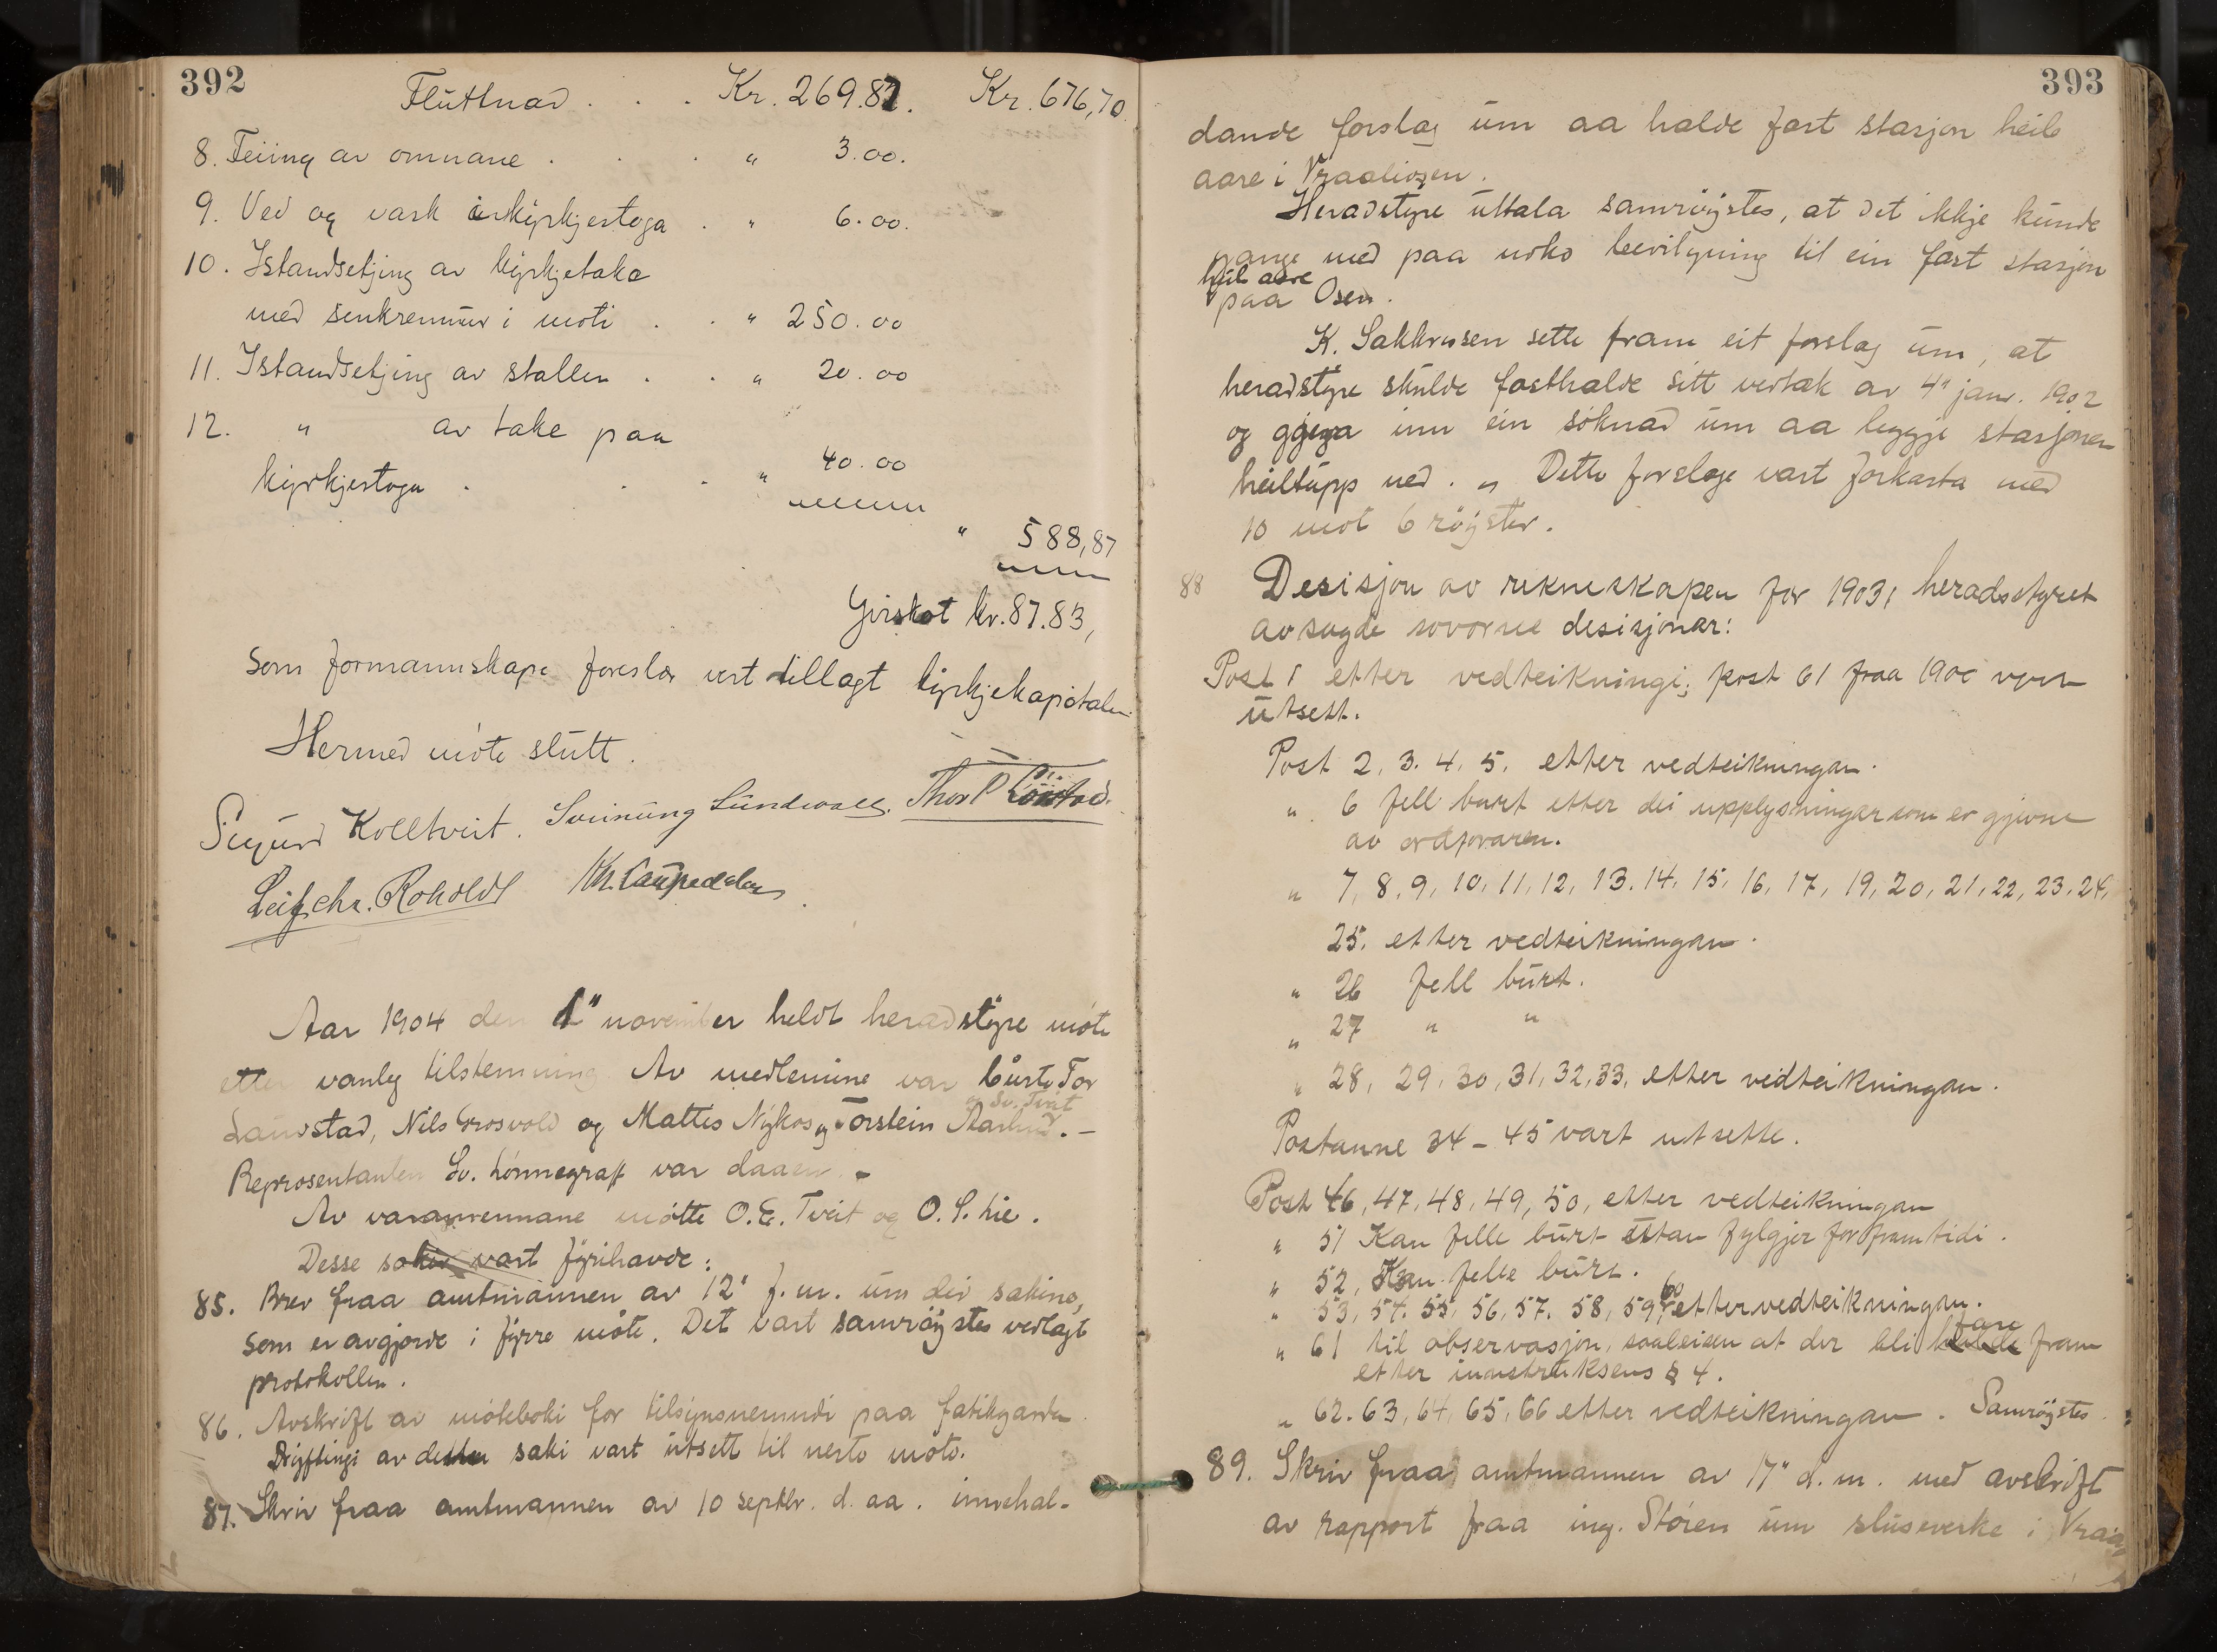 392
Fluttnad . . . Kr. 269.87. Kr. 676,70.
8. Feiing av omnane . . . " 3.00.
9. Ved og vask i kyrkjestoga . " 6.00.
10. Istandsetjing av kyrkjetake
med senkremur i moti . . " 250.00
11. Istandsetjing av stallen . . " 20.00
12. " av take paa
kyrkjestoga . . . " 40.00
" 588,87
Yvirskot kr. 87.83,
som formannskape foreslær vert tillagt kyrkjekapitalen.
Hermed móte slutt.
Sigurd Kolltveit. Sveinung Lundevall. Thor P
Leif Chr. Roholdt
Aar 1904 den 1" november heldt heradstyre móte
etter vanleg tilstemning. Av medlemine var burte Tor
og Sv. Tveit
Laurstad, Nils Grosvold og Mattes Nykos og Torstein Aarhus. –
Representanten Sv. Lónnegraff var daaen. –
Av varamennane mótte O. E. Tveit og O. S. Lie.
Desse saker vart fyrihavde:
85. Brev fraa amtmannen av 12" f. m. um dei sakine,
som er avgjorde i fyrre móte. Det vart samróystes vedlagt
protokollen.
86. Avskrift av móteboki for tilsynsnemndi paa fatikgarden.
Dryftingi av denne saki vart utsett til neste móte.
87. Skriv fraa amtmannen av 10 septbr. d. aa. innehal-
393
dande forslag um aa halde fast stasjon heile
aare i Vraaliosen.
Heradstyre uttala samróystes, at det ikkje kunde
gange med paa noko bevilgning til ein fast stasjon
heile aare
paa Osen.
K. Sakkrusen sette fram eit forslag um, at
heradstyre skulde fasthalde sitt vedtak av 4" janr. 1902
og gjeva inn ein sóknad um aa leggje stasjonen
heiltupp ned. – Dette forslage vart forkasta med
10 mot 6 róyster.
88 Desisjon av rekneskapen for 1903; heradsstyret
avsagde sovorne desisjonar:
Post 1 etter vedteikningi; post 61 fraa 1900 vert
utsett.
Post 2, 3. 4, 5, etter vedteikningan.
" 6 fell burt etter dei upplysningar som er gjevne
av ordforaren.
" 7, 8, 9, 10, 11, 12, 13. 14, 15, 16, 17, 19, 20, 21, 22, 23, 24,
25, etter vedteikningan.
" 26 fell burt.
" 27 " "
" 28, 29, 30, 31, 32, 33, etter vedteikningan.
Postanne 34 – 45 vart utsette.
Post 46, 47, 48, 49, 50, etter vedteikningan
" 51 Kan felle burt utan fylgjer for framtidi.
" 52, Kan felle burt.
" 53, 54. 55, 56, 57. 58, 59, 60 etter vedteikningan.
" 61 til observasjon, soaleisen at der bli fare fram
etter innstruksens § 4.
" 62. 63, 64, 65, 66 etter vedteikningan. Samróystes.
89. Skriv fraa amtmannen av 17" d. m. med avskrift
av rapport fraa ing. Stóren um sluseverke i Vraa-